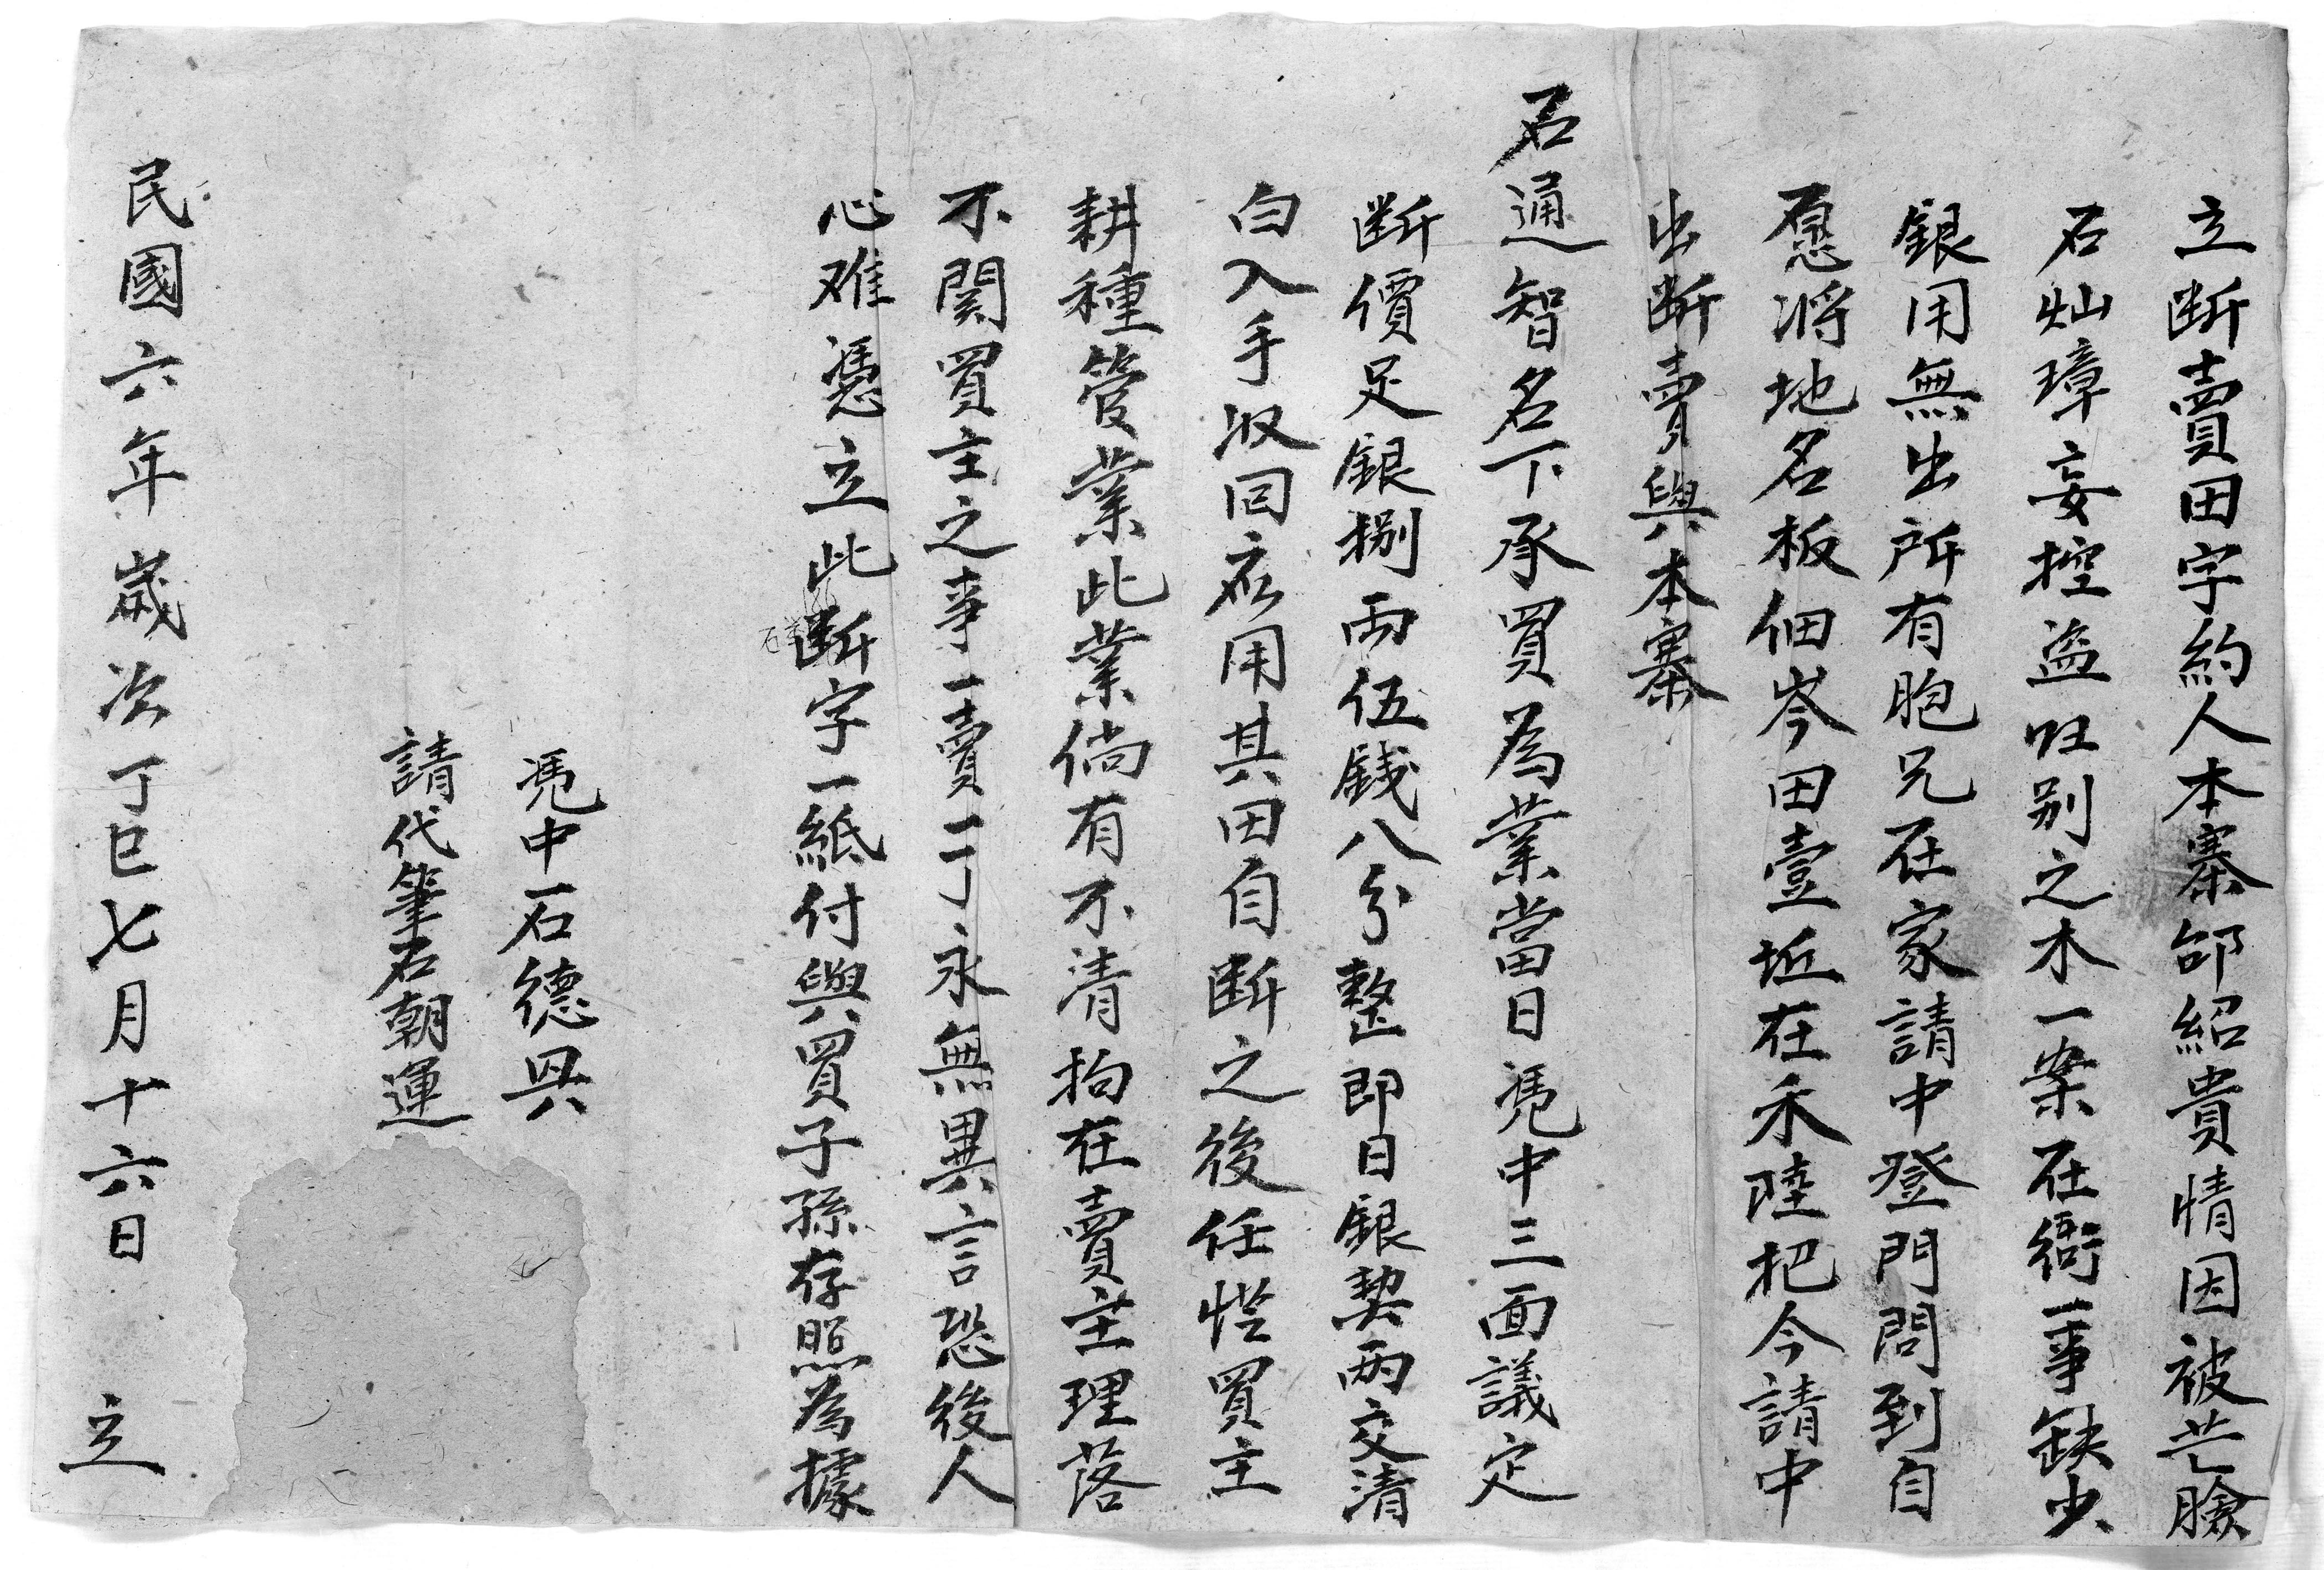 立断賣田字約人本寨邰紹貴情因被芒臉
石灿璋妄控盗吐别之木一案在衙一事缺少
銀用無出所有胞兄在家請中登門問到自
愿将地名板佃岑田壹坵在禾陸把今請中
出断賣與本寨
石通智名下承買為業當日凭中三面議定
断價足銀捌両伍錢八分整即日銀契两交清
白入手収囘應用其田自断之後任凭買主
耕種管業此業倘有不清拘在賣主理落
不関買主之事一賣一了永無異言恐後人
心难憑立此断字一紙付與買子孫存照為據
凭中石德興
請代筆石朝運
民國六年歲次丁巳七月十六日 立